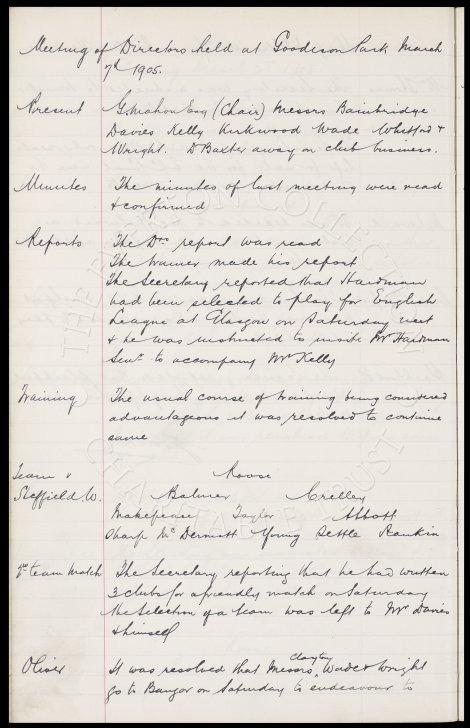 Meeting of Directors held at Goodison Park March
7th 1905.
Present G. Mahon Esq (Chair) Messrs Bainbridge
Davies Kelly Kirkwood Wade Whitford &
Wright. Dr Baxter away on club business.
Minutes The minutes of last meeting were read
& confirmed
Reports The Drs report was read
The trainer made his report
The Secretary reported that Hardman
had been selected to play for English
League at Glasgow on Saturday next
& he was instructed to invite Mr Hardman
Senr to accompany Mr Kelly
Training The usual course of training being considered
advantageous it was resolved to continue
same
Team v Roose
Sheffield W. Balmer Crelley
Makepeace Taylor Abbott
Sharp McDermott Young Settle Rankin
2nd team Match The Secretary reporting that he had written
3 clubs for a friendly match on Saturday
the selection of a team was left to Mr Davies
& himself
Oliver It was resolved that Messrs Clayton, Wade & Wright
go to Bangor on Saturday to endeavour to
THE EVERTON COLLECTION
CHARITABLE TRUST